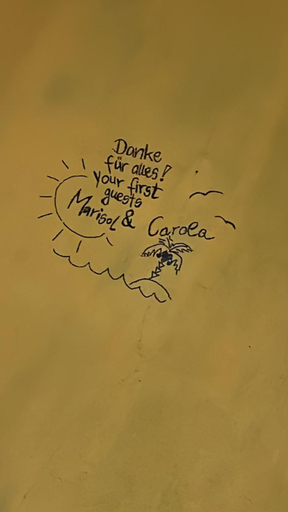 Danke
für alles!
Your first
guests
Marisol & Carola